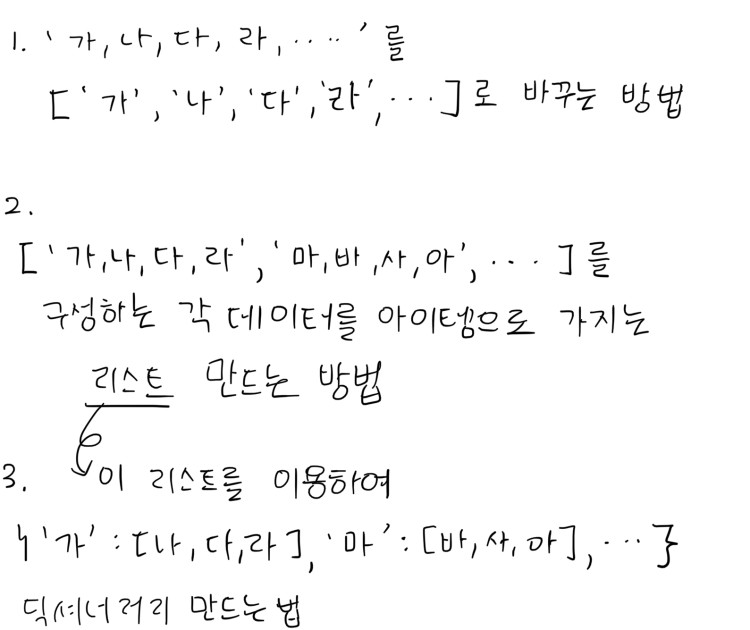 1. '가, 나, 다, 라, .....'를
['가', '나', '다', '라', ...]로 바꾸는 방법
2.
['가,나,다,라', '마,바,사,아', ...]를
구성하는 각 데이터를 아이템으로 가지는
리스트 만드는 방법
3. 이 리스트를 이용하여
{'가' : [나, 다, 라], '마' : [바, 사, 아], ...}
딕셔너러리 만드는법